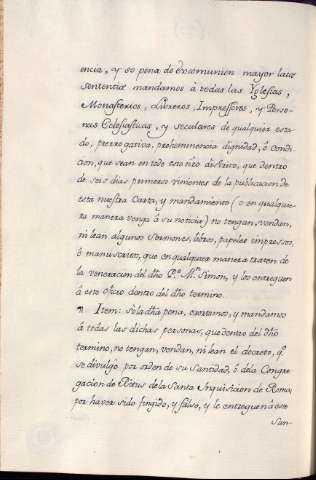 encia, y so pena de excomunion mayor latæ
sententiæ mandamos à todas las Yglesias,
Monasterios, Libreros, Impressores, y Perso-
nas Eclesiasticas, y seculares de qualquier esta
do, prerrogativa, prehemminencia dignidad, ò condi
cion, que sean en todo este nro distrito, que dentro
de seis dias primeros vinientes de la publicacion de
esta nuestra Carta, y mandamiento (o en qualquie
ra manera venga à su noticia) no tengan, vendan,
ni lean algunos sermones, libros, papeles impressos,
ò manuscritos, que en qualquiera manera traten de
la veneracion del dho Pe. Mn. Simon, y los entreguen
à este oficio dentro del dho termino.
Item: so la dha pena, exortamos, y mandamos
à todas las dichas personas, que dentro del dho
termino, no tengan, vendan, ni lean el decreto, q
se divulgò por orden de su Santidad, ò de la Congre
gacion de Ritus de la Santa Inquisicion de Roma,
por haver sido fingido, y falso, y le entreguen à este
San-